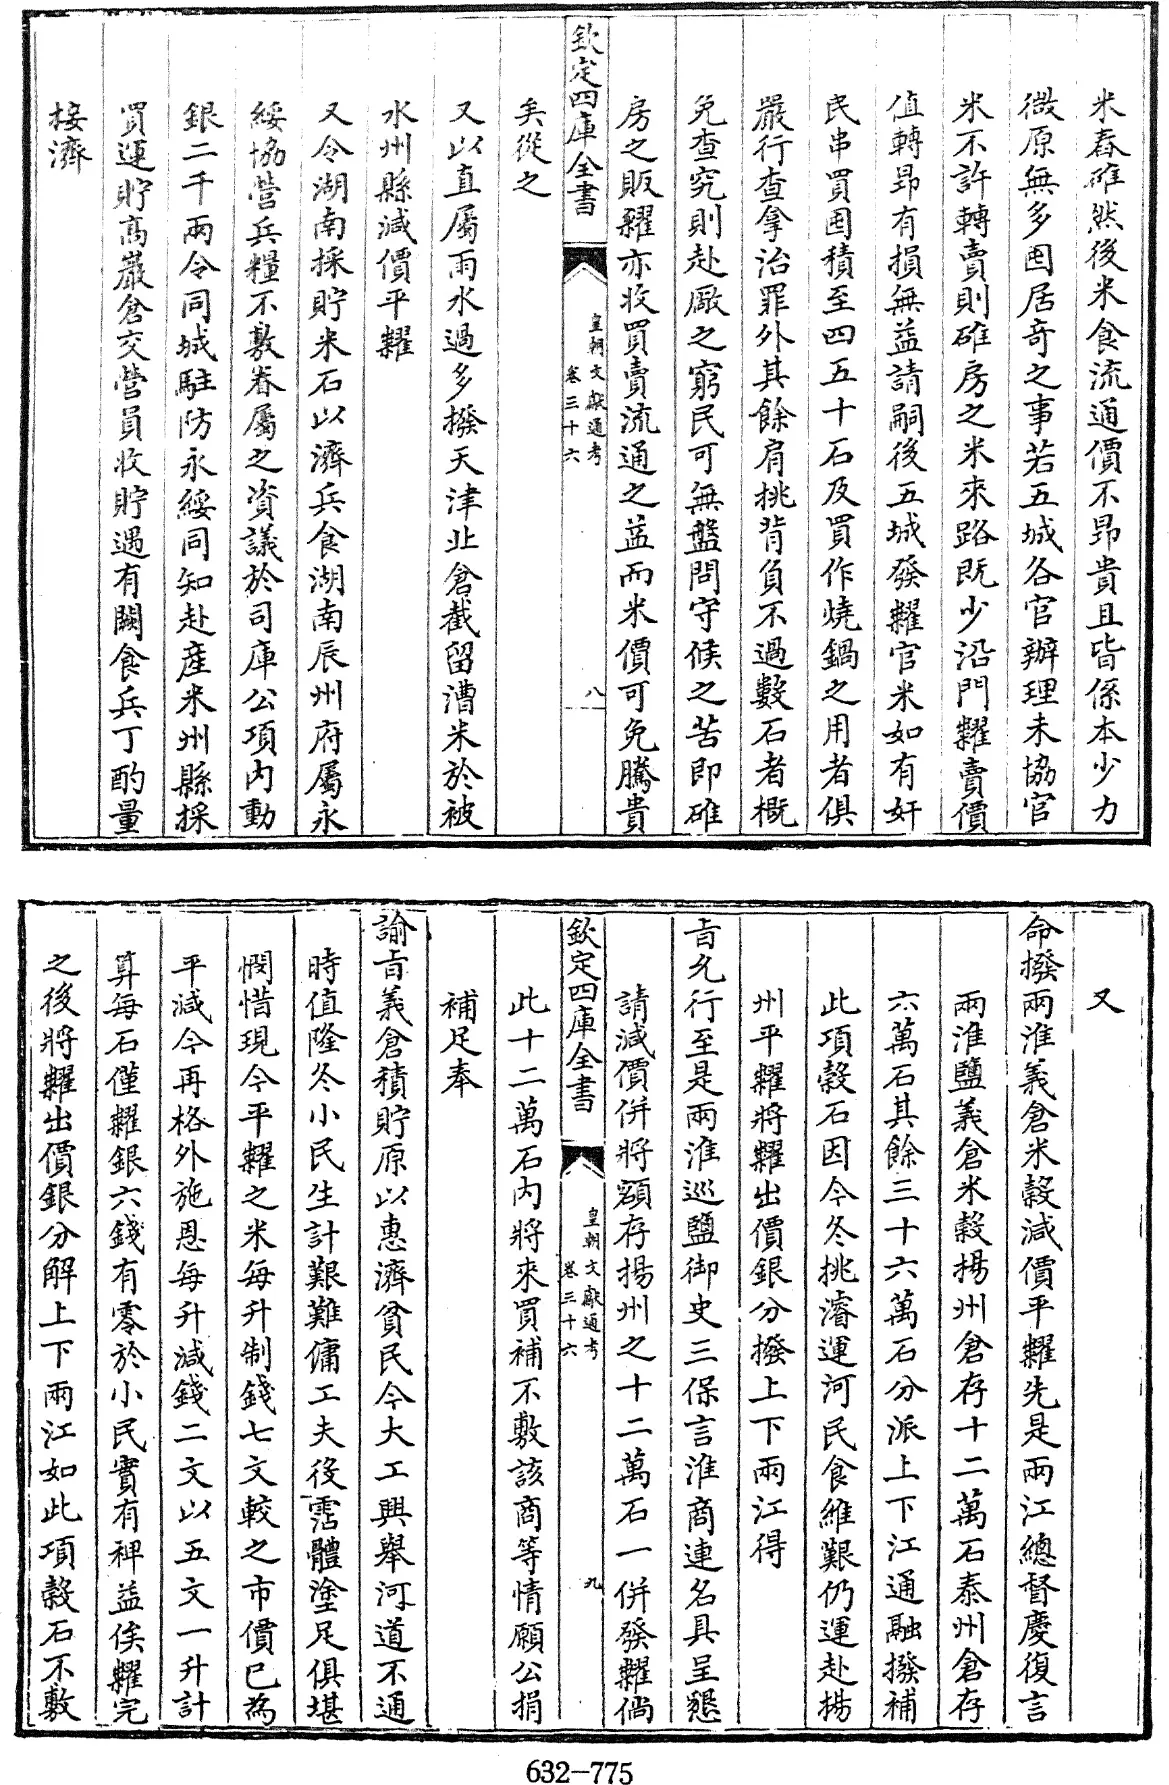 米舂碓然後米食流通價不昂貴且皆係本少力
微原無多囤居奇之事若五城各官辦理未協官
米不許轉賣則碓房之米來路既少沿門糶賣價
值轉昂有損無益請嗣後五城發糶官米如有奸
民串買囤積至四五十石及買作燒鍋之用者俱
嚴行查拿治罪外其餘肩挑背負不過數石者概
免查究則赴廠之窮民可無盤問守候之苦即碓
房之販糶亦收買賣流通之益而米價可免騰貴
欽定四庫全書
皇朝文獻通考
卷三十六
八
矣從之
又以直屬雨水過多撥天津北倉截留漕米於被
水州縣減價平糶
又令湖南採貯米石以濟兵食湖南辰州府屬永
綏協營兵糧不敷眷屬之資議於司庫公項內動
銀二千兩令同城駐防永綏同知赴產米州縣採
買運貯高巖倉交營員收貯遇有闕食兵丁酌量
接濟
又
命撥兩淮義倉米穀減價平糶先是兩江總督慶復言
兩淮鹽義倉米穀揚州倉存十二萬石泰州倉存
六萬石其餘三十六萬石分派上下江通融撥補
此項穀石因今冬挑濬運河民食維艱仍運赴揚
州平糶將糶出價銀分撥上下兩江得
旨允行至是兩淮巡鹽御史三保言淮商連名具呈懇
請減價併將額存揚州之十二萬石一併發糶倘
欽定四庫全書
皇朝文獻通考
卷三十六
九
此十二萬石內將來買補不敷該商等情願公捐
補足奉
諭旨義倉積貯原以惠濟貧民今大工興舉河道不通
時值隆冬小民生計艱難傭工夫役霑體塗足俱堪
憫惜現今平糶之米每升制錢七文較之市價已為
平減今再格外施恩每升減錢二文以五文一升計
算每石僅糶銀六錢有零於小民實有裨益俟糶完
之後將糶出價銀分解上下兩江如此項穀石不敷
632-775